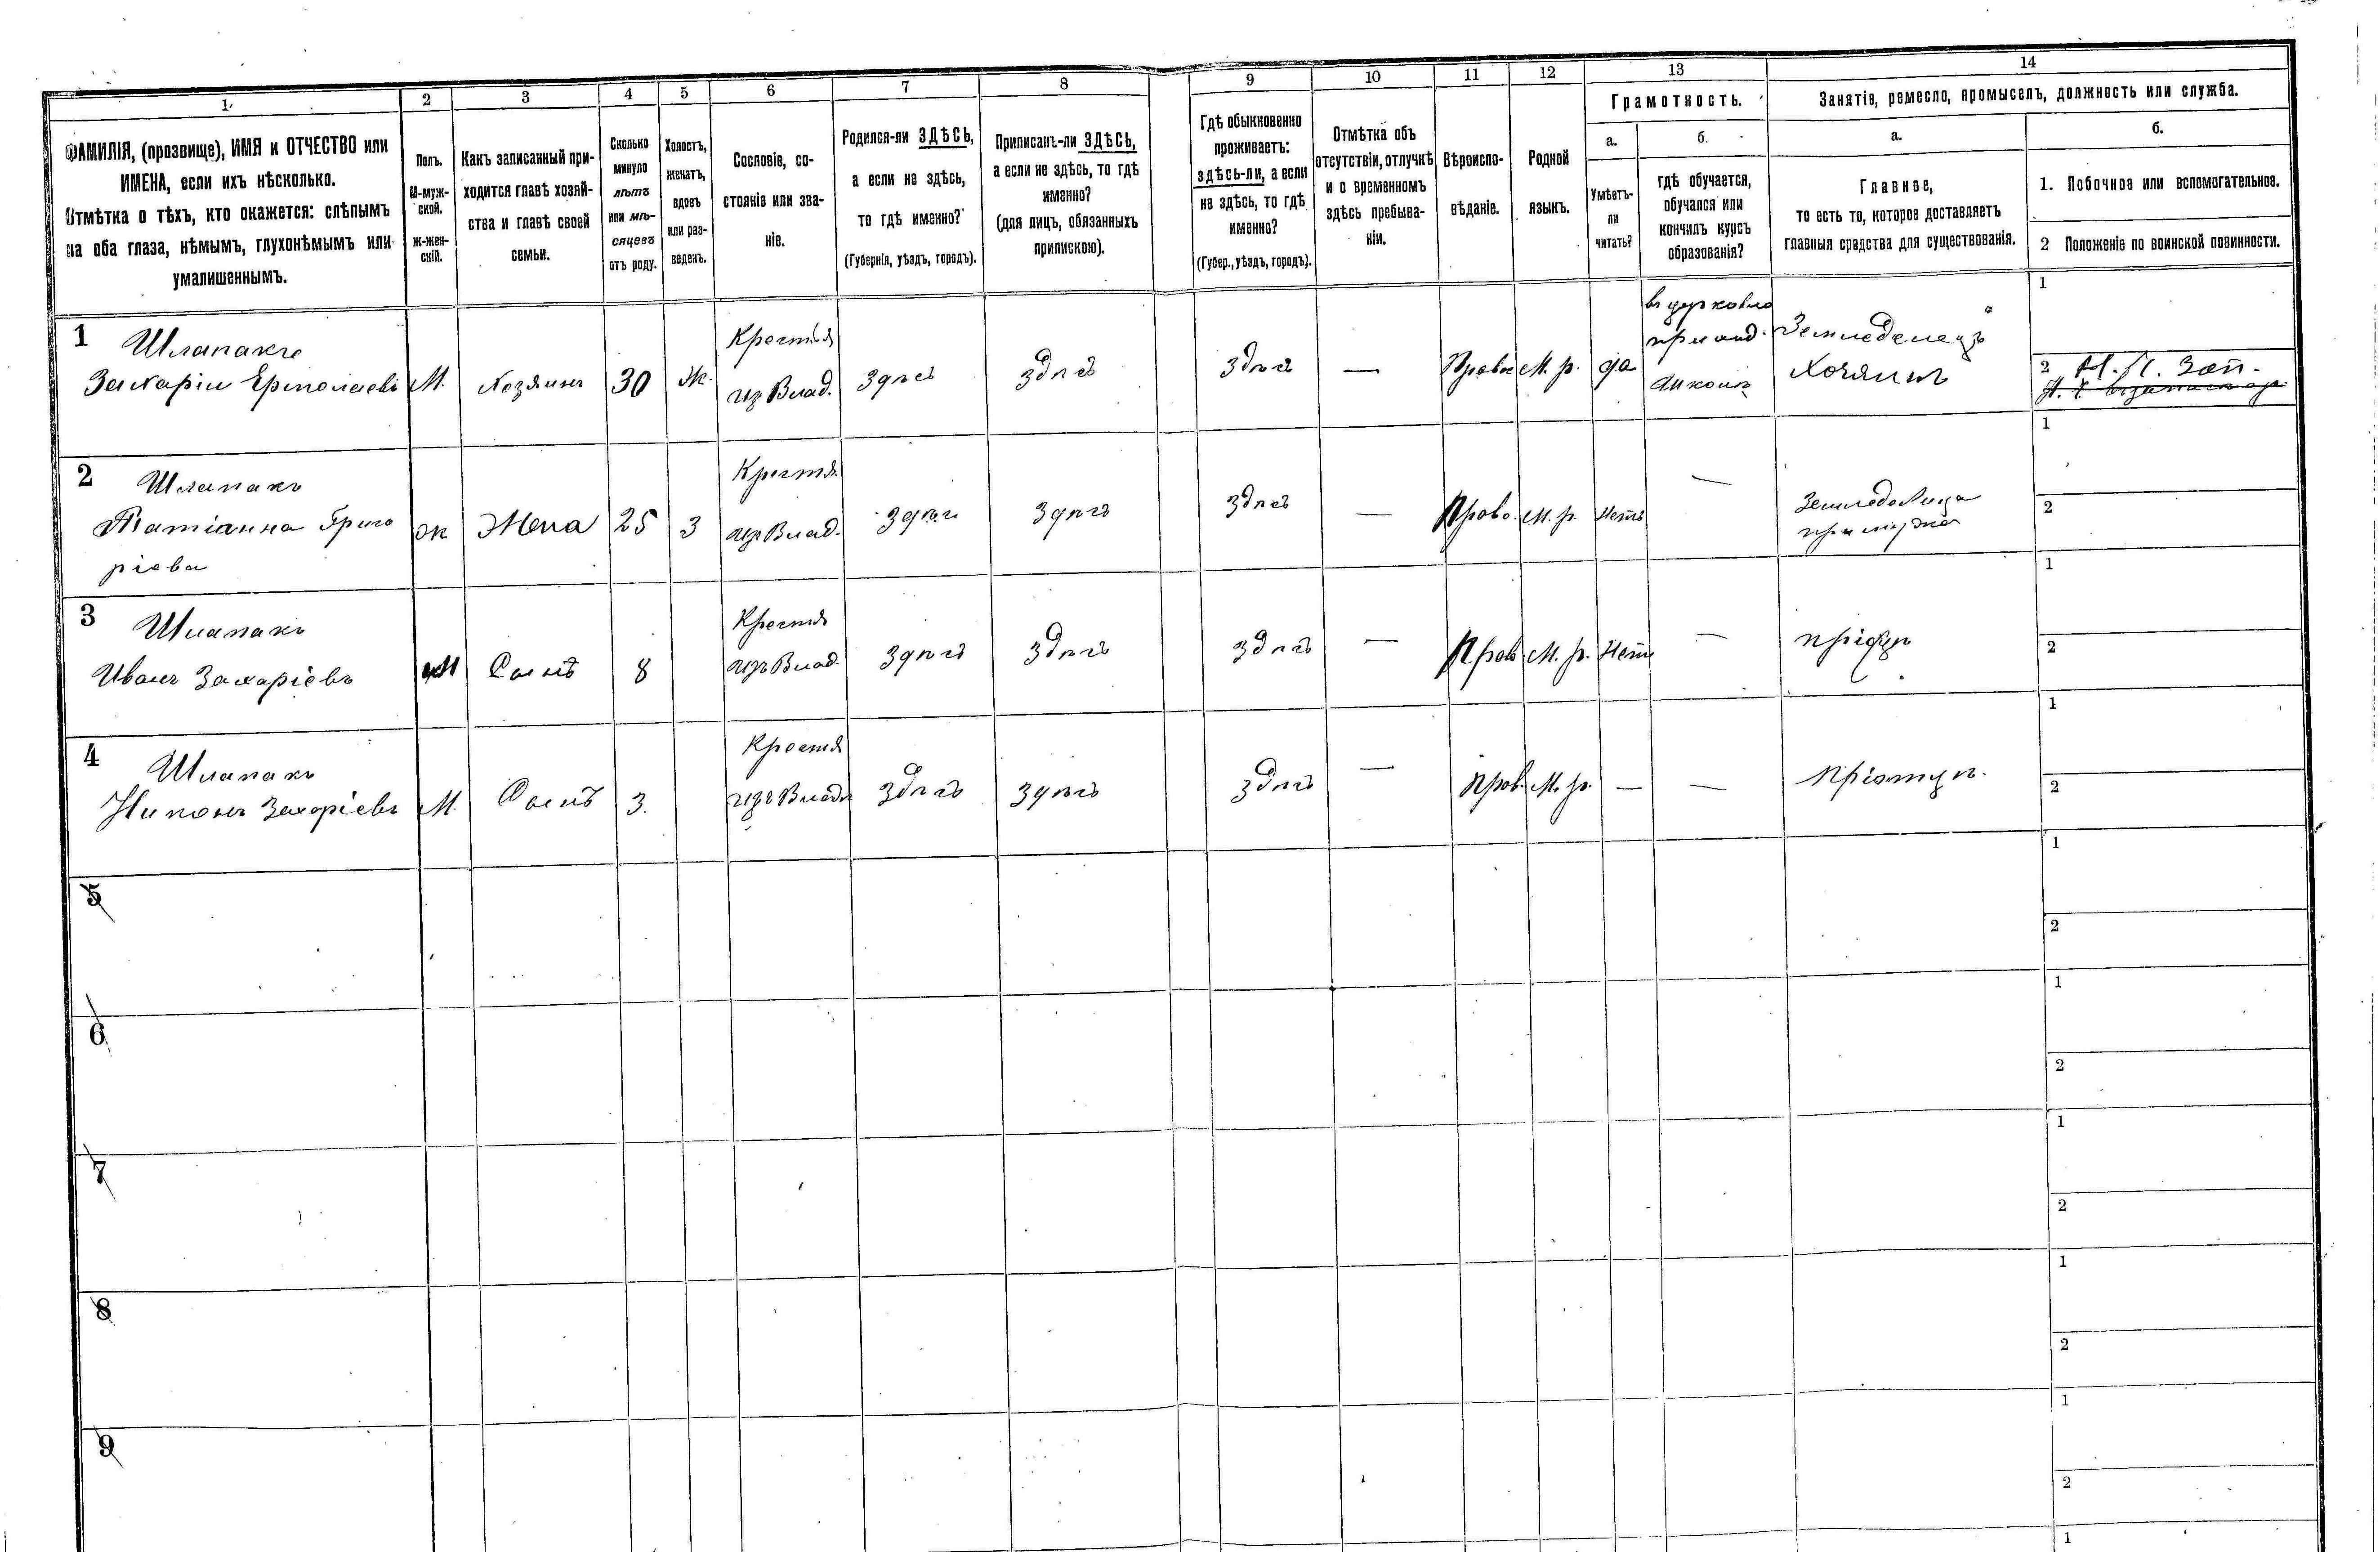 1 2 3 4 5 6 7 8 9 10 11 12 13 14
ФАМИЛІЯ, (прозвище), ИМЯ и ОТЧЕСТВО или
ИМЕНА, если ихъ нѣсколько.
Отмѣтка о тѣхъ, кто окажется: слѣпымъ
на оба глаза, нѣмымъ, глухонѣмымъ или
умалишеннымъ.
Полъ.
М-муж-
ской.
Ж-жен-
скій.
Какъ записанный при-
ходится главѣ хозяй-
ства и главѣ своей
семьи.
Сколько
минуло
лѣтъ
или мѣ-
сяцевъ
отъ роду.
Холостъ,
женатъ,
вдовъ
или раз-
веденъ.
Сословіе, со-
стояніе или зва-
ніе.
Родился-ли ЗДѢСЬ,
а если не здѣсь,
то гдѣ именно?
(Губернія, уѣздъ, городъ).
Приписанъ-ли ЗДѢСЬ,
а если не здѣсь, то гдѣ
именно?
(для лицъ, обязанныхъ
припискою).
Гдѣ обыкновенно
проживаетъ:
здѣсь-ли, а если
не здѣсь, то гдѣ
именно?
(Губер., уѣздъ, городъ).
Отмѣтка объ
отсутствіи, отлучкѣ
и о временномъ
здѣсь пребыва-
ніи.
Вѣроиспо-
вѣданіе.
Родной
языкъ.
Грамотность.
а.
Умѣетъ-
ли
читать?
б.
гдѣ обучается,
обучался или
кончилъ курсъ
образованія?
Занятіе, ремесло, промыселъ, должность или служба.
а.
Главное,
то есть то, которое доставляетъ
главныя средства для существованія.
б.
1. Побочное или вспомогательное.
2 Положеніе по воинской повинности.
1 Шлапакъ
Захарій Ермолаевъ
М.
Хозяинъ
30
Ж.
Крестья
изъ Влад.
Здѣсь
Здѣсь
Здѣсь
—
Право
М. р.
да
въ церковно
приход.
школѣ
Земледелецъ
Хозяинъ
1
2
2 Шлапакъ
Татіанна Григо
ріева
ж
Жена
25
З
Крестя.
изъ Влад.
Здѣсь
Здѣсь
Здѣсь
—
Право.
М. р.
Нетъ
—
при мужѣ
1
2
3 Шлапакъ
Иванъ Захаріевъ
М
Сынъ
8
Крестя
изъ Влад.
Здѣсь
Здѣсь
Здѣсь
—
Прав.
М. р.
Нетъ
—
1
2
4 Шлапакъ
Никонъ Захаріевъ
М.
Сынъ
3.
Крестя
изъ Влад
Здѣсь
Здѣсь
Здѣсь
—
Прав.
М. р.
—
—
При отцѣ.
1
2
5
1
2
6
1
2
7
1
2
8
1
2
9
1
2
1